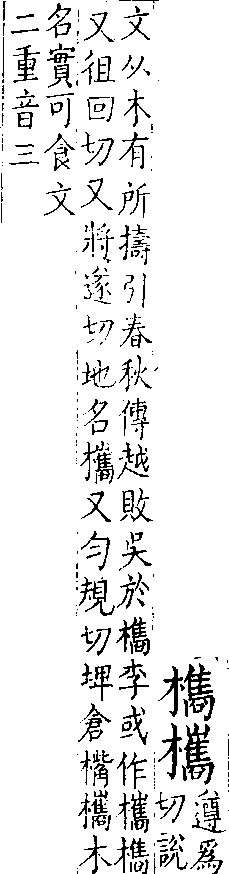 檇欈
遵爲
切說
文从木有所擣引春秋傳越敗吳於檇李或作欈檇
又徂回切又將遂切地名欈又勻規切埤倉欈木
名實可食文
二重音三